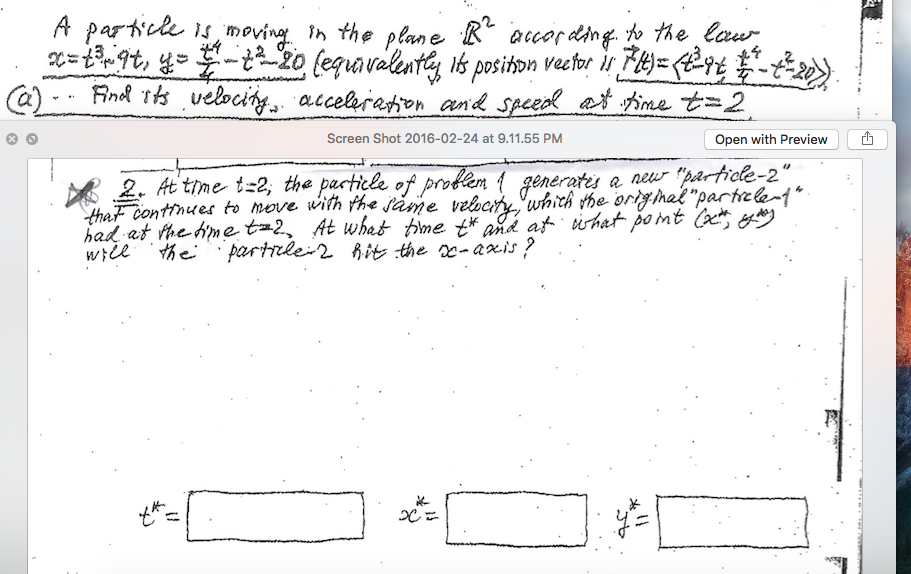 A particle is moving in the plane ℝ² according to the law
x=t³-9t, y= t⁴/4 - t² - 20 (equivalently, its position vector is r⃗(t)=<t³-9t, t⁴/4 - t² - 20>)
(a) .. Find its velocity, acceleration and speed at time t=2
Screen Shot 2016-02-24 at 9.11.55 PM
Open with Preview
2. At time t=2, the particle of problem 1 generates a new "particle-2"
that continues to move with the same velocity, which the original "particle-1"
had at the time t=2. At what time t* and at what point (x*, y*)
will the particle-2 hit the x-axis?
t*=
x*=
y*=